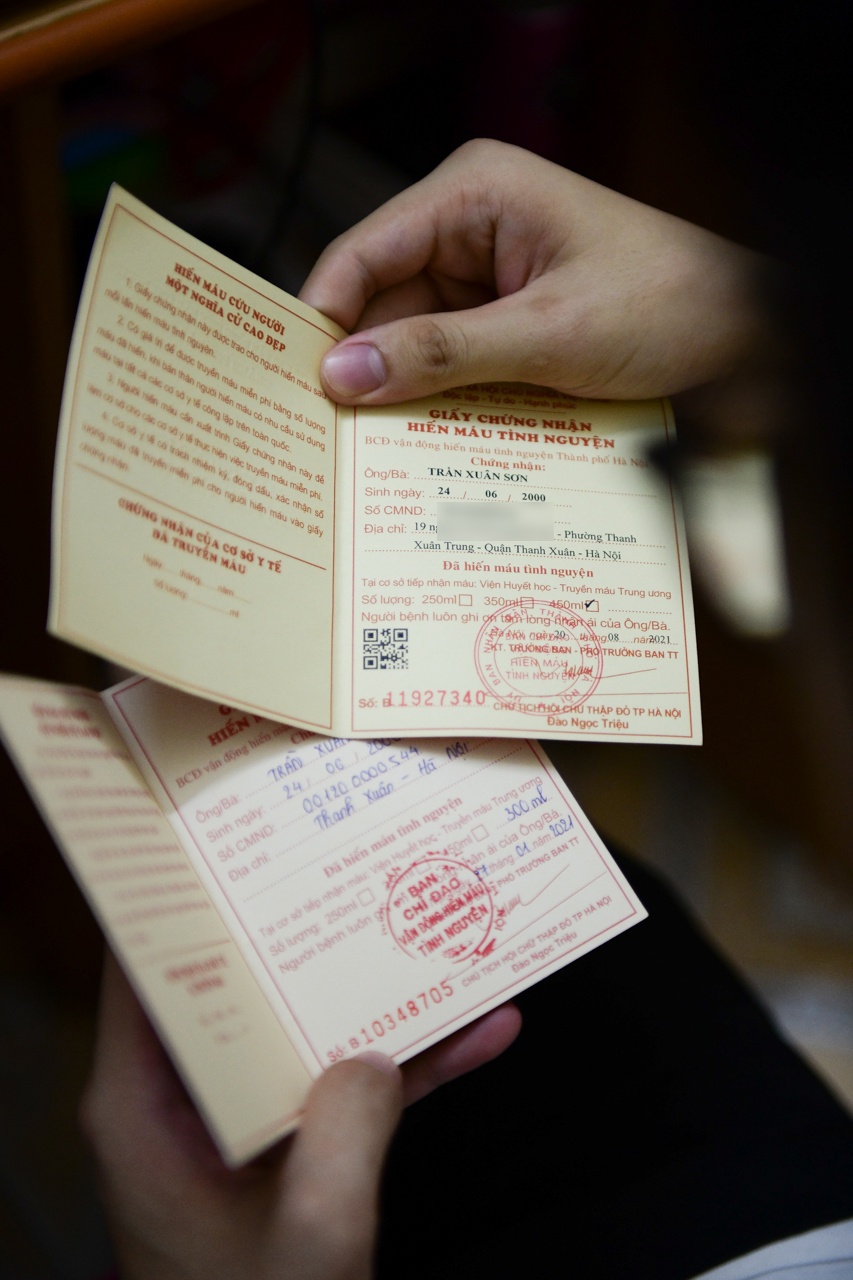 HIẾN MÁU CỨU NGƯỜI
MỘT NGHĨA CỬ CAO ĐẸP
1. Giấy chứng nhận này được trao cho người hiến máu sau
mỗi lần hiến máu tình nguyện.
2. Có giá trị để được truyền máu miễn phí bằng số lượng
máu đã hiến, khi bản thân người hiến máu có nhu cầu sử dụng
máu tại tất cả các cơ sở y tế công lập trên toàn quốc.
3. Người hiến máu cần xuất trình Giấy chứng nhận này để
làm cơ sở cho các cơ sở y tế thực hiện việc truyền máu miễn phí.
4. Cơ sở y tế có trách nhiệm ký, đóng dấu, xác nhận số
lượng máu đã truyền miễn phí cho người hiến máu vào giấy
chứng nhận.
CHỨNG NHẬN CỦA CƠ SỞ Y TẾ
ĐÃ TRUYỀN MÁU
Ngày..... tháng..... năm.....
Số lượng:.....ml
Độc lập - Tự do - Hạnh phúc
GIẤY CHỨNG NHẬN
HIẾN MÁU TÌNH NGUYỆN
BCĐ vận động hiến máu tình nguyện Thành phố Hà Nội
Chứng nhận:
Ông/Bà: TRẦN XUÂN SƠN
Sinh ngày: 24 / 06 / 2000
Số CMND:
Địa chỉ: 19 - Phường Thanh
Xuân Trung - Quận Thanh Xuân - Hà Nội
Đã hiến máu tình nguyện
Tại cơ sở tiếp nhận máu: Viện Huyết học - Truyền máu Trung ương
Số lượng: 250ml 350ml 450ml
Người bệnh luôn ghi ơn tấm lòng nhân ái của Ông/Bà.
Hà Nội, ngày 20 tháng 08 năm 2021
KT. TRƯỞNG BAN - PHÓ TRƯỞNG BAN TT
HIẾN MÁU
TÌNH NGUYỆN
Số: B 11927340
CHỦ TỊCH HỘI CHỮ THẬP ĐỎ TP HÀ NỘI
Đào Ngọc Triệu
HIẾN
BCĐ vận động hiến máu tình
Ông/Bà: TRẦN XUÂN
Sinh ngày: 24 / 06 / 2000
Số CMND: 001200000544
Địa chỉ: Thanh Xuân - Hà Nội
Đã hiến máu tình nguyện
Tại cơ sở tiếp nhận máu: Viện Huyết học - Truyền máu Trung ương
Số lượng: 250ml 450ml 300 ml
Người bệnh luôn ghi nhân ái của Ông/Bà.
tháng 01 năm 2021
PHÓ TRƯỞNG BAN TT
BAN
CHỈ ĐẠO
VẬN ĐỘNG HIẾN MÁU
TÌNH NGUYỆN
Số: B 10348705
CHỦ TỊCH HỘI CHỮ THẬP ĐỎ TP HÀ NỘI
Đào Ngọc Triệu